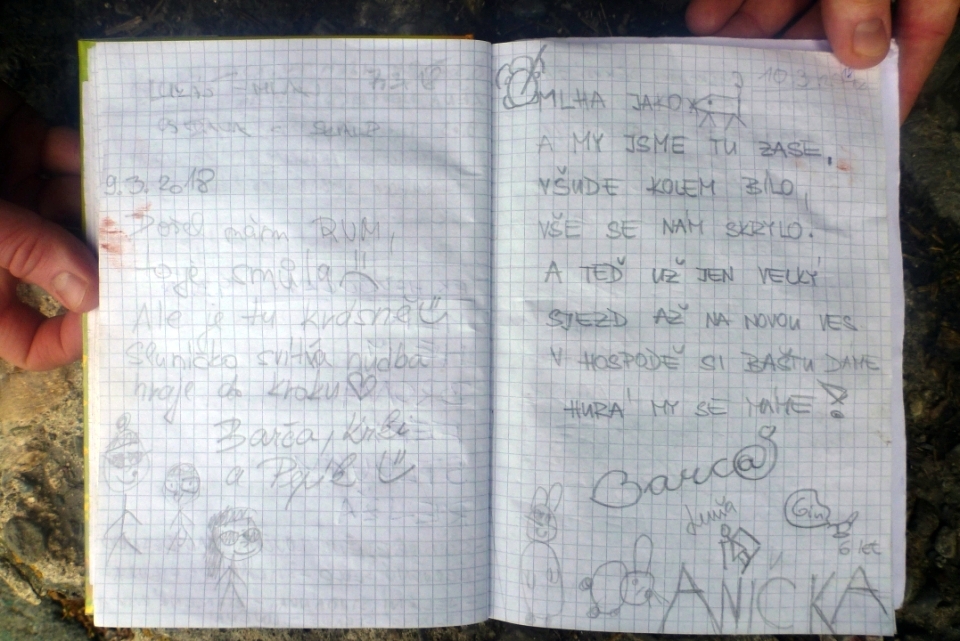 9.3.2018
mám RUM,
to je smůla
Ale je tu krásně
Sluníčko svítí a hudba
hraje do kroku
Barča,
a
10.3.
MLHA JAKO
A MY JSME TU ZASE,
VŠUDE KOLEM BÍLO,
VŠE SE NÁM SKRYLO.
A TEĎ UŽ JEN VELKÝ
SJEZD AŽ NA NOVOU VES
V HOSPODĚ SI BAŠTU DÁME
HURÁ MY SE MÁME!
Barča
Gin
6 let
ANIČKA